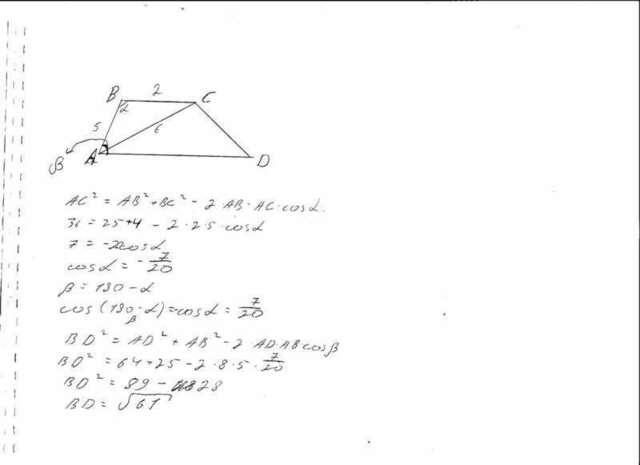 B 2 C
α
5 6
β A D
AC² = AB² + BC² - 2 AB · AC · cosα.
36 = 25+4 - 2·2·5·cosα
7 = -20cosα
cosα = - 7/20
β = 180 - α
cos(180-α) = cosα = 7/20
β
BD² = AD² + AB² - 2 AD·AB cosβ
BD² = 64 + 25 - 2·8·5· 7/20
BD² = 89 - 28
BD = √61